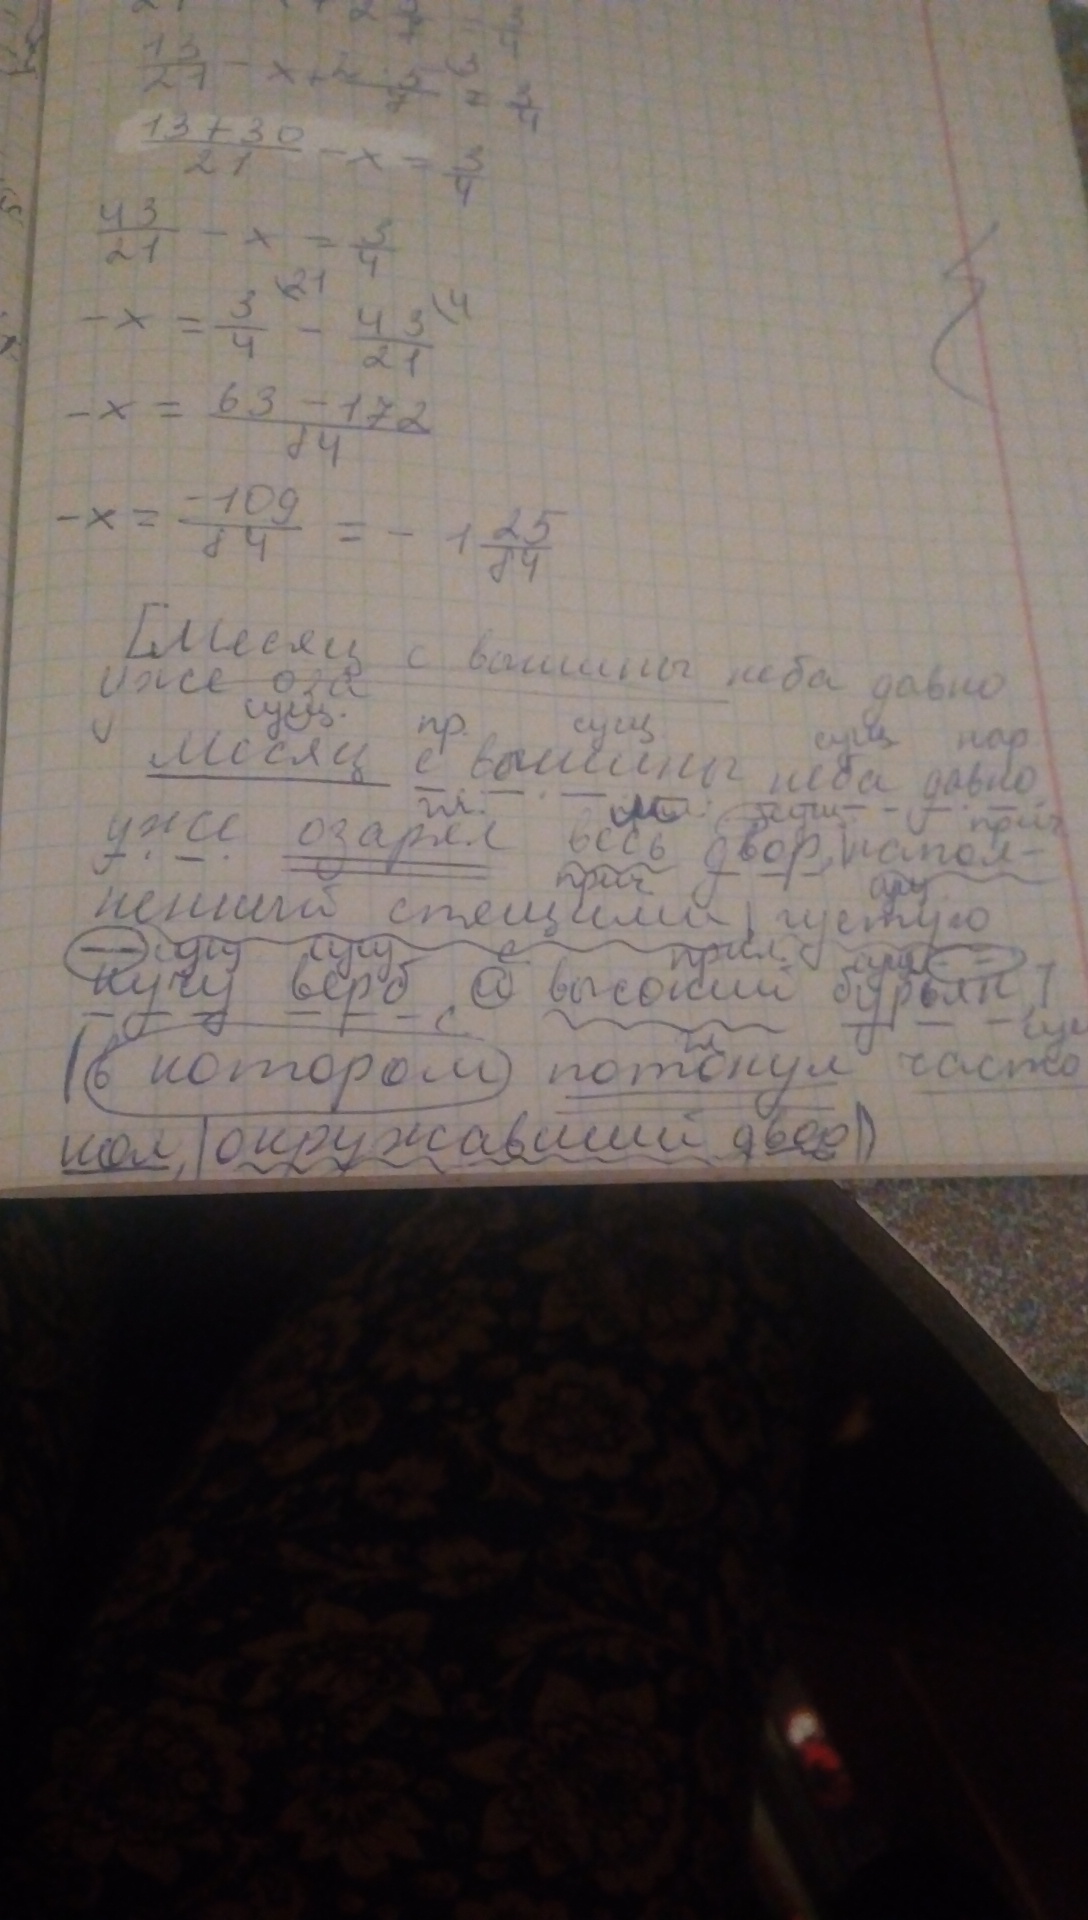 13/21 - x + = 3/4
13+30/21 - x = 3/4
43/21 - x = 3/4
-x = 3/4 (21 - 43/21 (4
-x = 63 - 172/84
-x = -109/84 = - 1 25/84
[Месяц с вышины неба давно
уже оза
сущ. пр. сущ сущ нар.
Месяц с вышины неба давно
гл. прич
уже озарял весь двор, наполн-
прич
ненный спящими, густую
сущ сущ с прил. сущ
кучу верб и высокий бурьян,
с гл сущ
(в котором потонул часто
кол, |окружавший двор|)